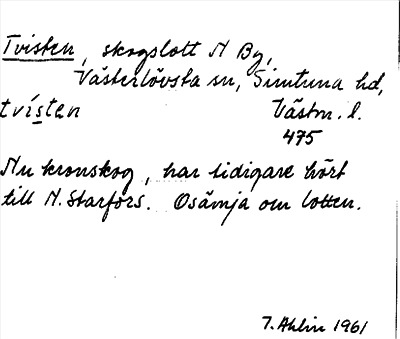 Tvisten, skogslott N By,
Västerlövsta sn, Simtuna hd,
tvísten Västm. l.
475
Nu kronskog, har tidigare hört
till N. Starfors. Osämja om lotten.
T. Ahlin 1961